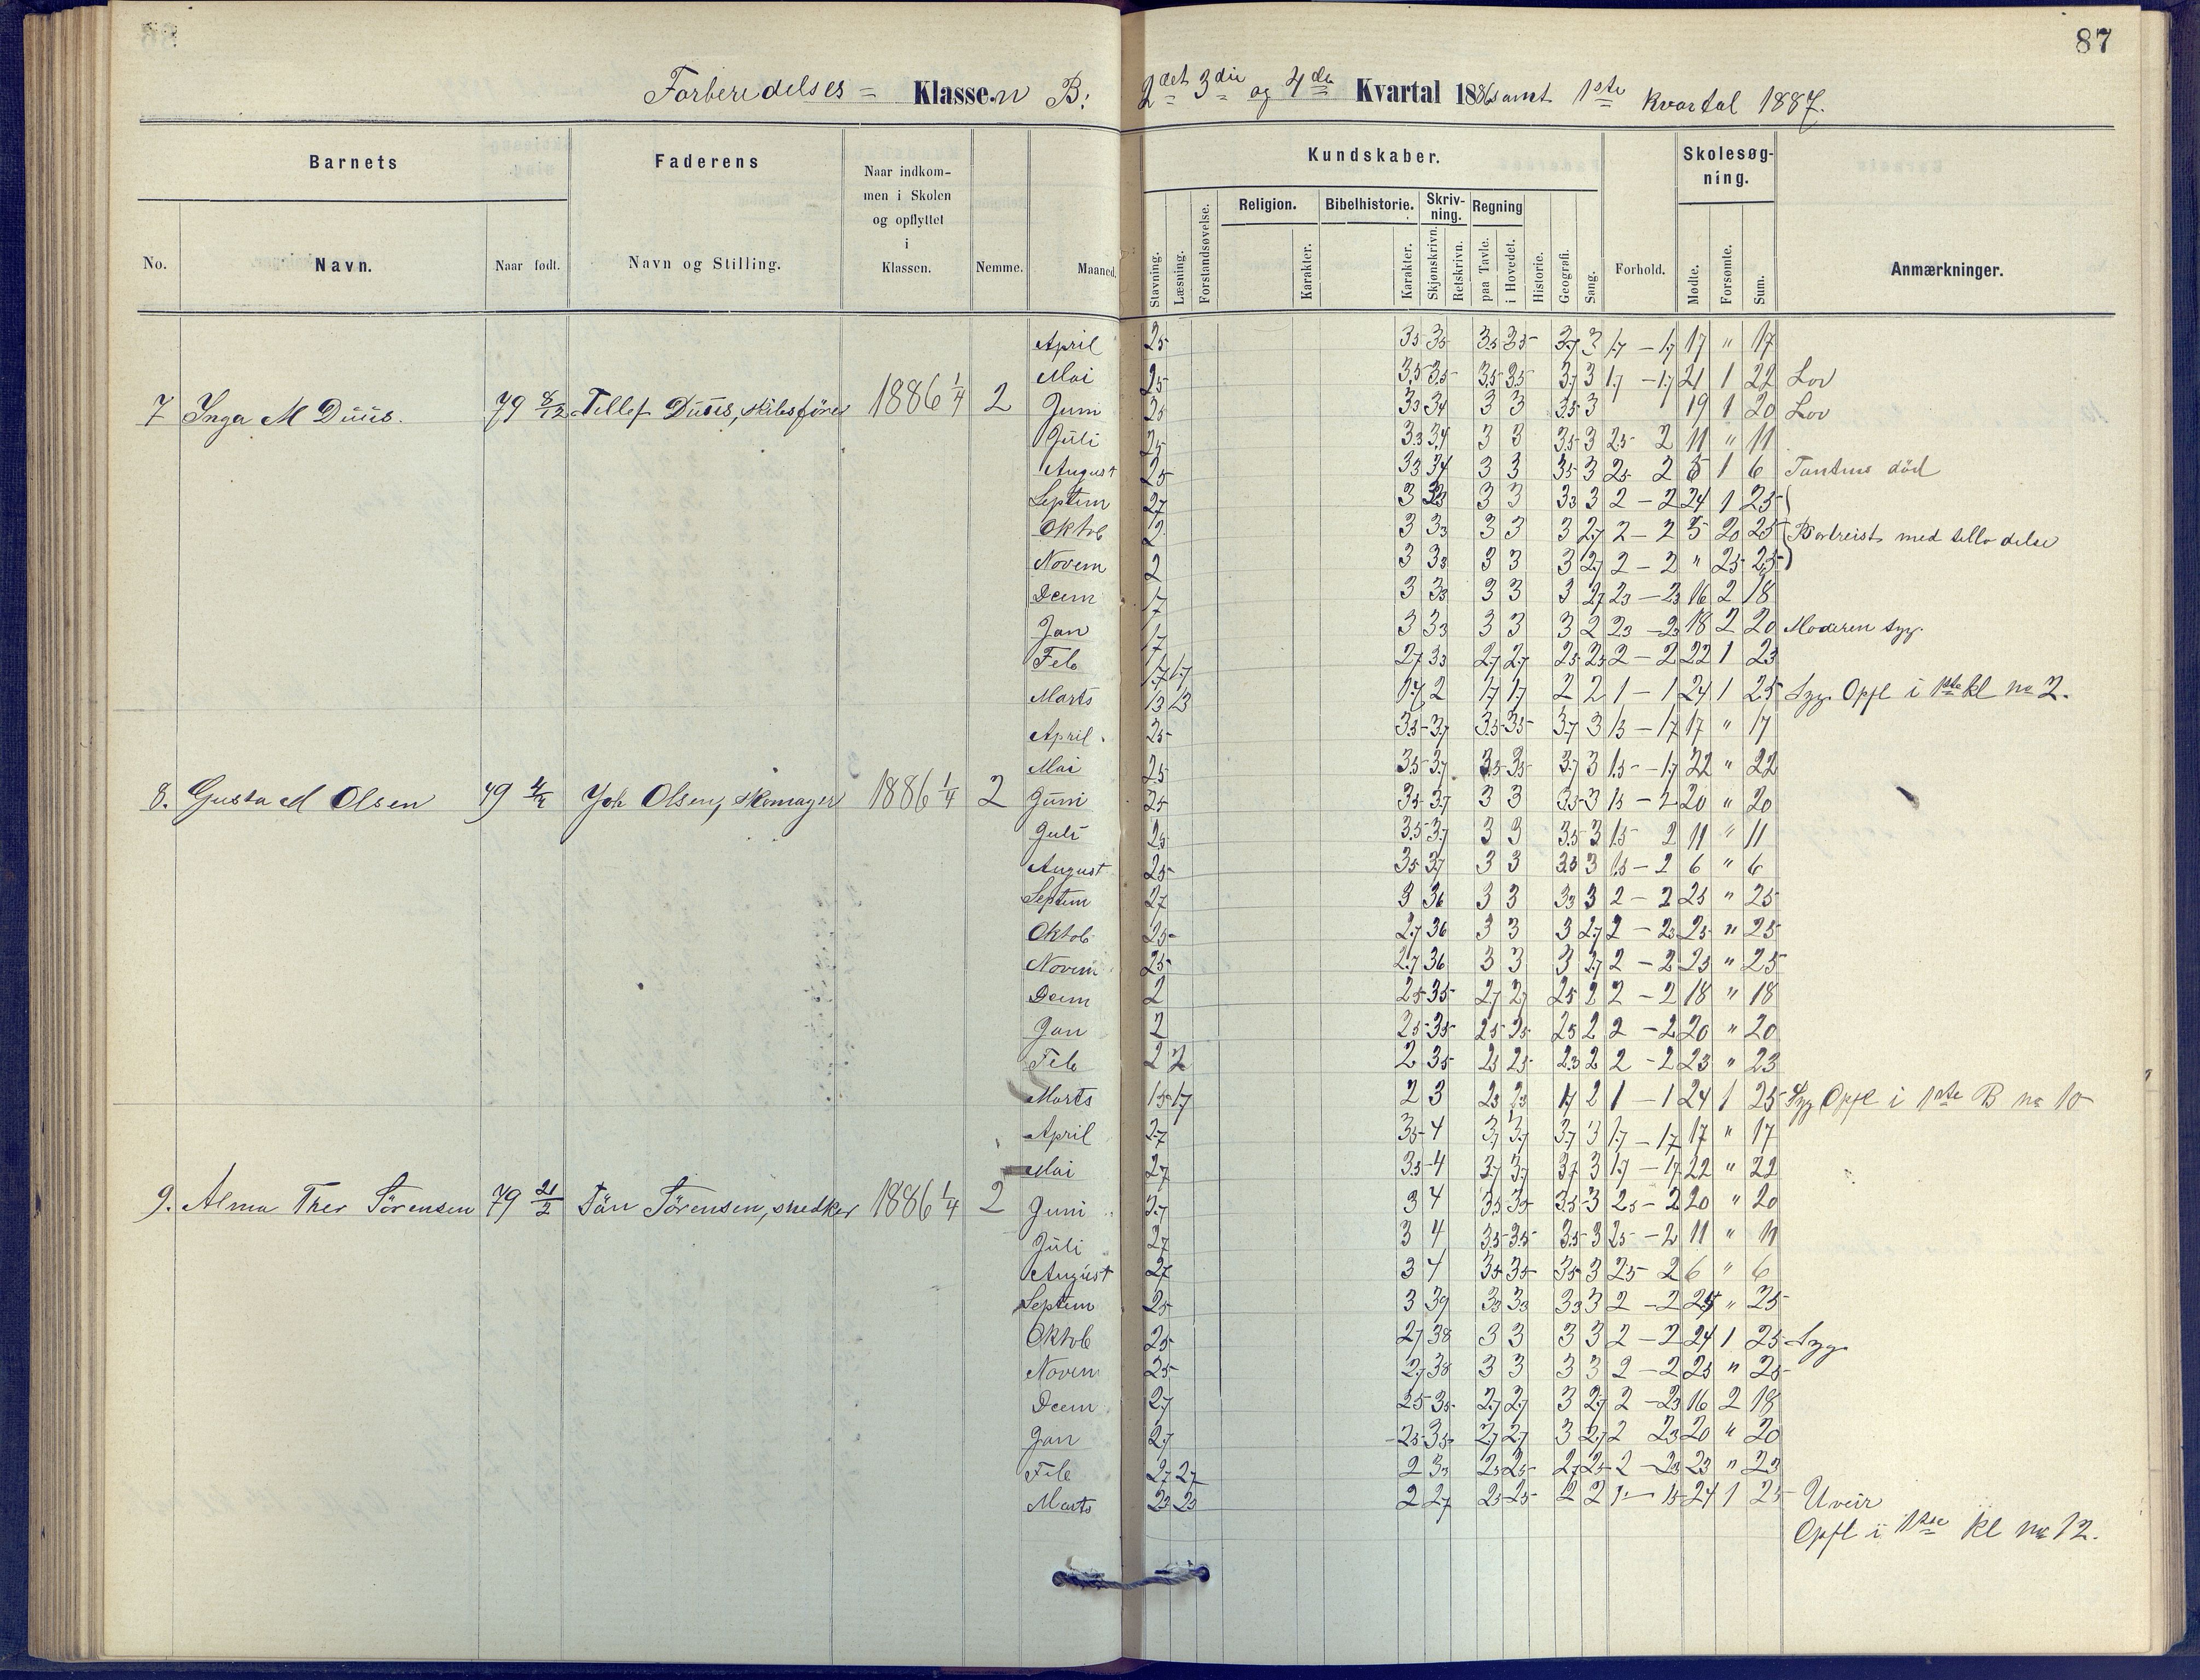 87
Forberedelses = Klassen B: 2det 3die og 4de Kvartal 1886 samt 1ste Kvartal 1887.
Barnets Faderens Naar indkom-
men i Skolen
og opflyttet
i
Klassen. Kundskaber. Skolesøg-
ning.
Religion. Bibelhistorie. Skriv-
ning. Regning
No. Navn. Naar født. Navn og Stilling. Nemme. Maaned. Stavning. Læsning. Forstandsøvelse. Karakter. Karakter. Skjønskrivn. Retskrivn. paa Tavle. i Hovedet. Historie. Geografi. Sang. Forhold. Mødte. Forsømte. Sum. Anmærkninger.
April 25 35 35 35 35 37 3 17 – 17 17 " 17
Mai 25 35 35 35 35 37 3 17 – 17 21 1 22 Lov
7 Inga M Duus. 79 8/12 Tellef Duus, skibsfører 1886 1/4 2 Juni 25 33 34 3 3 35 3 19 1 20 Lov
Juli 25 33 34 3 3 35 3 25 2 11 " 11
August 25 33 34 3 3 35 3 25 2 5 1 6 Tantens död
Septem 27 3 33 3 3 33 3 2 – 2 24 1 25
Oktob 2 3 33 3 3 3 27 2 – 2 5 20 25 Bortreist med
Novem 2 3 33 3 3 3 27 2 – 2 " 25 25
Decm 17 3 33 3 3 3 27 23 – 23 16 2 18
Jan 17 3 33 3 3 3 2 23 – 23 18 2 20 Moderen syg.
Feb 17 17 27 33 27 27 25 25 2 – 2 22 1 23
Marts 13 13 17 2 17 17 2 2 1 – 1 24 1 25 Syg. Opfl i 1ste kl no 2.
April 25 35 37 35 35 37 3 13 – 17 17 " 17
Mai 25 35 37 35 35 37 3 15 – 17 22 " 22
8. Gusta M Olsen 79 4/4 Joh Olsen, skomager 1886 1/4 2 Juni 25 35 37 3 3 35 3 15 – 2 20 " 20
Juli 25 35 37 3 3 35 3 15 2 11 " 11
August 25 35 37 3 3 35 3 15 – 2 6 " 6
Septem 27 3 36 3 3 33 3 2 – 2 25 " 25
Oktob 25 27 36 3 3 3 27 2 – 23 25 " 25
Novem 25 27 36 3 3 3 27 2 – 2 25 " 25
Decm 2 25 35 27 27 25 2 2 – 2 18 " 18
Jan 2 25 35 25 25 25 2 2 – 2 20 " 20
Feb 2 2 2 35 25 25 23 2 2 – 2 23 " 23
Marts 15 17 2 3 23 23 17 2 1 – 1 24 1 25 Syg Opfl i 1ste B no 10
April 27 35 4 37 37 37 3 17 – 17 17 " 17
Mai 27 35 4 37 37 37 3 17 – 17 22 " 22
9. Alma Ther Sörensen 79 21/2 Sörensen, snedker 1886 1/4 2 Juni 27 3 4 35 35 35 3 25 – 2 20 " 20
Juli 27 3 4 35 35 35 3 25 – 2 11 " 11
August 27 3 4 35 35 35 3 25 2 6 " 6
Septem 25 3 39 33 33 33 3 2 – 2 25 " 25
Oktob 25 27 38 3 3 3 3 2 – 2 24 1 25 Syg.
Novem 25 27 38 3 3 3 3 2 – 2 25 " 25
Decm 27 25 35 27 27 3 27 2 – 23 16 2 18
Jan 27 25 35 27 27 3 27 2 23 20 " 20
Feb 27 27 2 33 25 25 27 25 2 – 23 23 " 23
Marts 23 23 2 27 25 25 2 2 1 – 15 24 1 25 Uveir
Opfl i 1ste kl no 12.